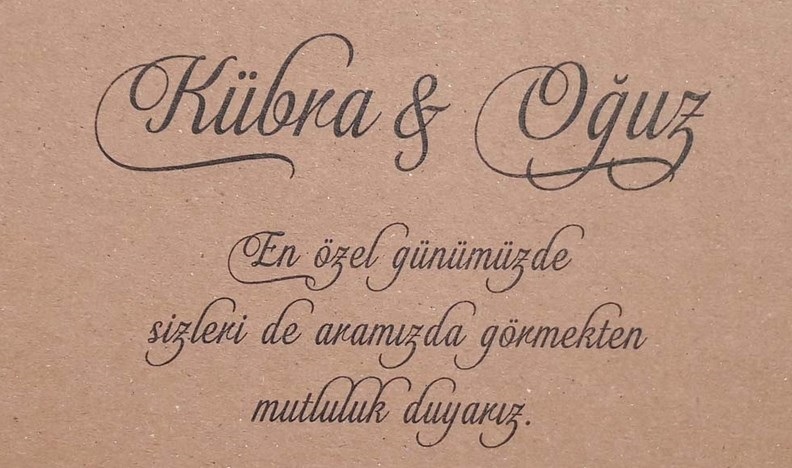 Kübra & Oğuz
En özel günümüzde
sizleri de aramızda görmekten
mutluluk duyarız.